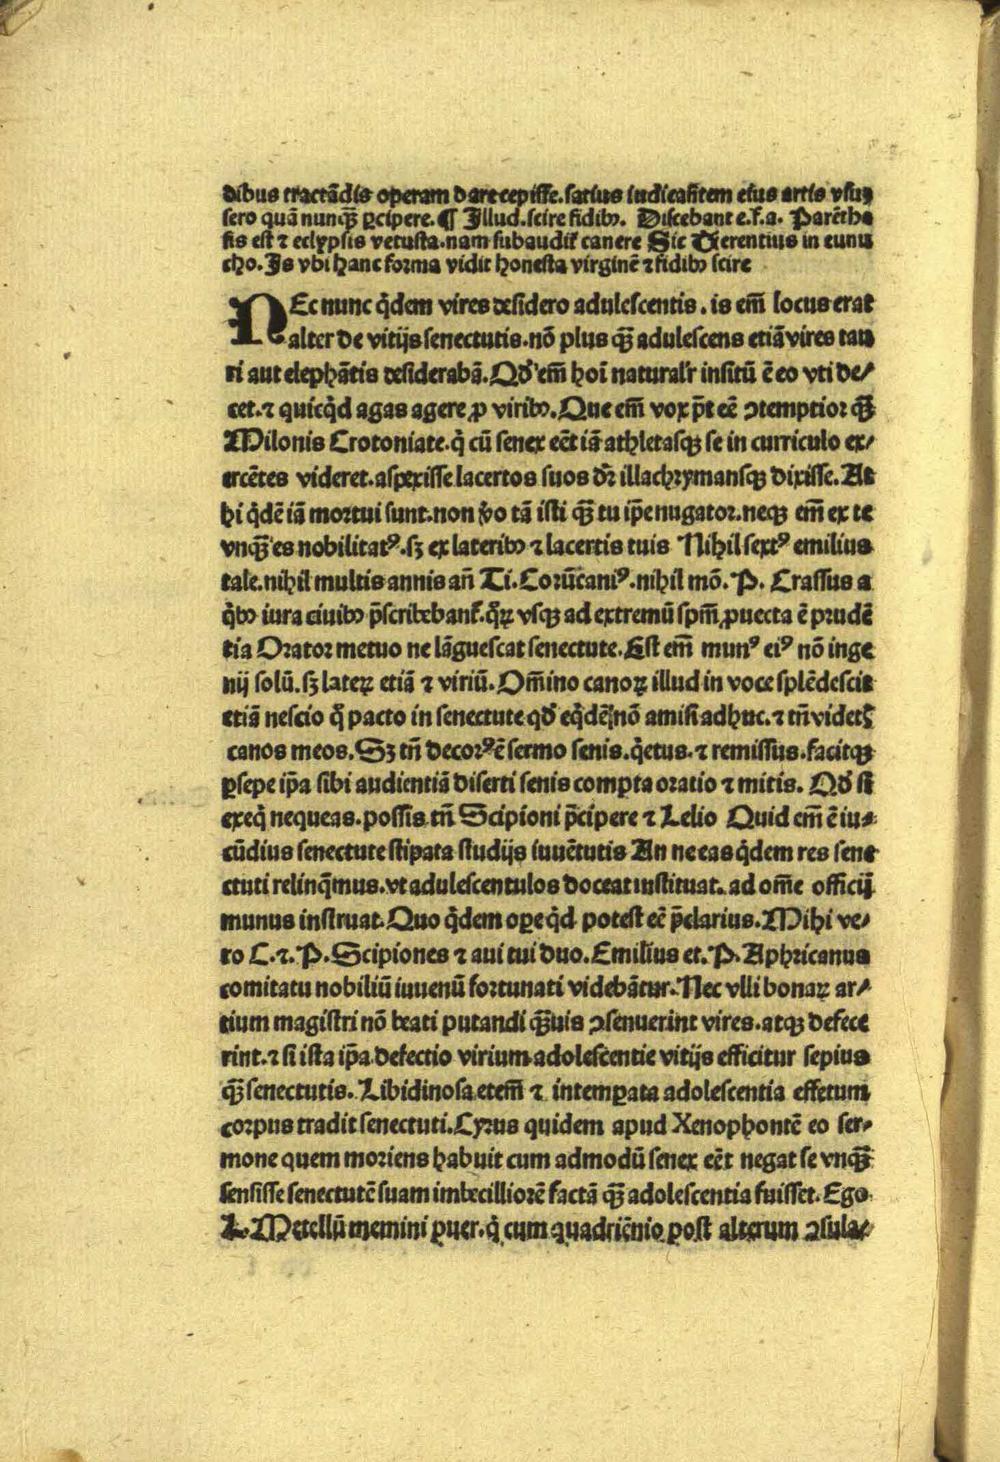 dibus tractādis operam dare cepisse. satius iudicassitem eius artis vsuȝ
sero quā nunqȝ ꝑcipere. ¶ Illud. scire fidibꝰ. Discebant e. f. a. Parētħe
sis est ⁊ eclypsis vetusta. nam subaudiť canere Sic Terentius in eunu
cho. Is vbi hanc forma vidit honesta virginē ⁊ fidibꝰ scire
NEc nunc q̇dem vires desidero adulescentis. is em̄ locus erat
alter de vitijs senectutis. nō plus qȝ̄ adulescens etiā vires tau
ri aut elephātis desiderabā. Qđ em̄ hoi̅ natural'r insitū ē eo vti de⸗
cet. ⁊ quicq̇d agas agere ꝓ viribꝰ. Que em̄ vox p̄t eē ↄtemptior qȝ̄
Milonis Crotoniate. q̇ cū senex eēt iā athletasqȝ se in curriculo ex⸗
ercētes videret. aspexisse lacertos suos dr̄ illachrymansqȝ dixisse. At
hi q̇dē iā mortui sunt. non v̊o tā isti qȝ̄ tu ip̄e nugator. neqȝ em̄ ex te
vnqȝ̄ es nobilitatꝰ. sȝ ex lateribꝰ ⁊ lacertis tuis Nihil sextꝰ emilius
tale. nihil multis annis an̄ Ti. Corūcaniꝰ. nihil mō. P. Crassus a
q̇bꝰ iura ciuibꝰ p̄scribebanť. q̊ꝝ vsqȝ ad extremū spm̄ ꝓuecta ē prudē
tia Orator metuo ne lāguescat senectute. Est em̄ munꝰ eiꝰ nō inge
nij solū. sȝ lateꝝ etiā ⁊ viriū. Om̄ino canoꝝ illud in voce splēdescit
etiā nescio q̊ pacto in senectute qđ eq̇dē nō amisi adhuc. ⁊ tn̄ videtꝭ
canos meos. Sȝ tn̄ decorꝰ ē sermo senis. q̇etus. ⁊ remissus. facitqȝ
ꝑsepe ip̄a sibi audientiā diserti senis compta oratio ⁊ mitis. Qđ si
exeq̇ nequeas. possis tn̄ Scipioni p̄cipere ⁊ Lelio Quid em̄ ē iu⸗
cūdius senectute stipata studijs iuuētutis An ne eas q̇dem res sene
ctuti relinq̇mus. vt adulescentulos doceat instituat. ad om̄e officij
munus instruat. Quo q̇dem oꝑe q̇d potest eē p̄clarius. Mihi ve⸗
ro C. ⁊. P. Scipiones ⁊ aui tui duo. Emilius et. P. Aphricanus
comitatu nobiliū iuuenū fortunati videbātur. Nec vlli bonaꝝ ar⸗
tium magistri nō beati putandi qȝ̄uis ↄsenuerint vires. atqȝ defece
rint. ⁊ si ista ip̄a defectio virium adolescentie vitijs efficitur sepius
qȝ̄ senectutis. Libidinosa etem̄ ⁊ intemꝑata adolescentia effetum
corpus tradit senectuti. Cyrus quidem apud Xenophontē eo ser⸗
mone quem moriens habuit cum admodū senex eēt negat se vnqȝ̄
sensisse senectutē suam imbecilliorē factā qȝ̄ adolescentia fuisset. Ego
L. Metellū memini puer. q̇ cum quadriēnio post alterum ↄsula⸗